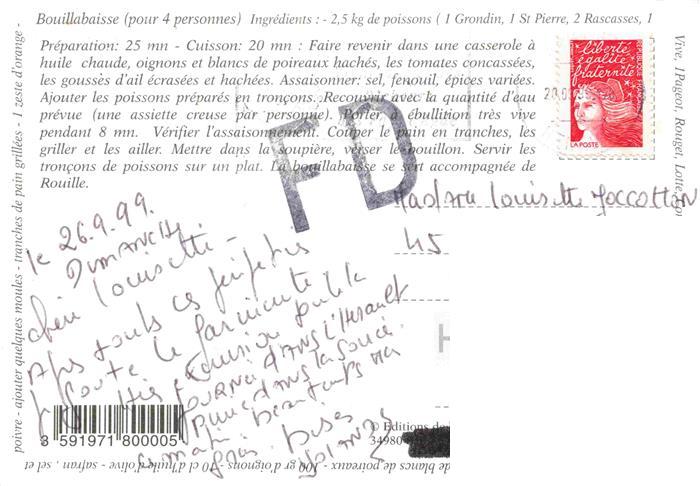 Bouillabaisse (pour 4 personnes) Ingrédients : - 2,5 kg de poissons ( 1 Grondin, 1 St Pierre, 2 Rascasses, 1
Vive, 1Pageot, Rouget, Lotte,
Préparation: 25 mn - Cuisson: 20 mn : Faire revenir dans une casserole à
huile chaude, oignons et blancs de poireaux hachés, les tomates concassées,
les goussès d'ail écrasées et hachées. Assaisonner: sel, fenouil, épices variées.
Ajouter les poissons préparés en tronçons. Recouvrir avec la quantité d'eau
prévue (une assiette creuse par personne). Porter à ébullition très vive
pendant 8 mn. Vérifier l'assaisonnement. Couper le pain en tranches, les
griller et les ailler. Mettre dans la soupière, verser le bouillon. Servir les
tronçons de poissons sur un plat. La bouillabaisse se sert accompagnée de
Rouille.
liberté
égalité
fraternité
LA POSTE
FD
Madame Louisette
45
le 26.9.99.
DIMANCHE
Chère Louisette -
Après toutes ces
je goute le farniente
très
excursion
JOURNÉE DANS L'Hérault
PLUIE DANS la soirée.
ce matin beau temps
gros bises
YOLANDE
3 591971 800005
© Editions de
34980
poivre - ajouter quelques moules - tranches de pain grillées - 1 zeste d'orange -
de blancs de poireaux - 100 gr d'oignons - 10 cl d'huile d'olive - safran - sel et